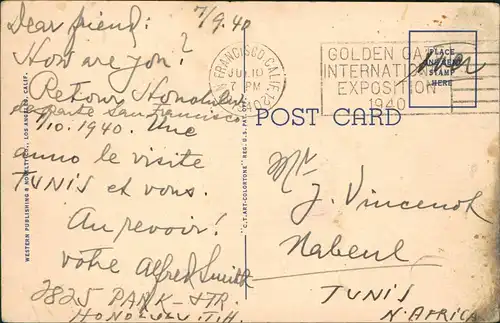 Dear friend: 7/9.40
How are you?
Retour Honolulu
departe San Francisco
/10. 1940. Une
anno le visite
TUNIS et vous.
Au revoir!
votre Alfred Smith
2825 PARK-STR.
HONOLULU T.H.
WESTERN PUBLISHING & NOVELTY CO., LOS ANGELES, CALIF.
"C.T. ART-COLORTONE" REG. U.S. PAT.
SAN FRANCISCO CALIF.
JUL 10
PM
1940
GOLDEN GATE
INTERNATIONAL
EXPOSITION
1940
PLACE
ONE CENT
STAMP
HERE
over
POST CARD
Mr
J. Vincenot
Nabeul
TUNIS
N. AFRICA